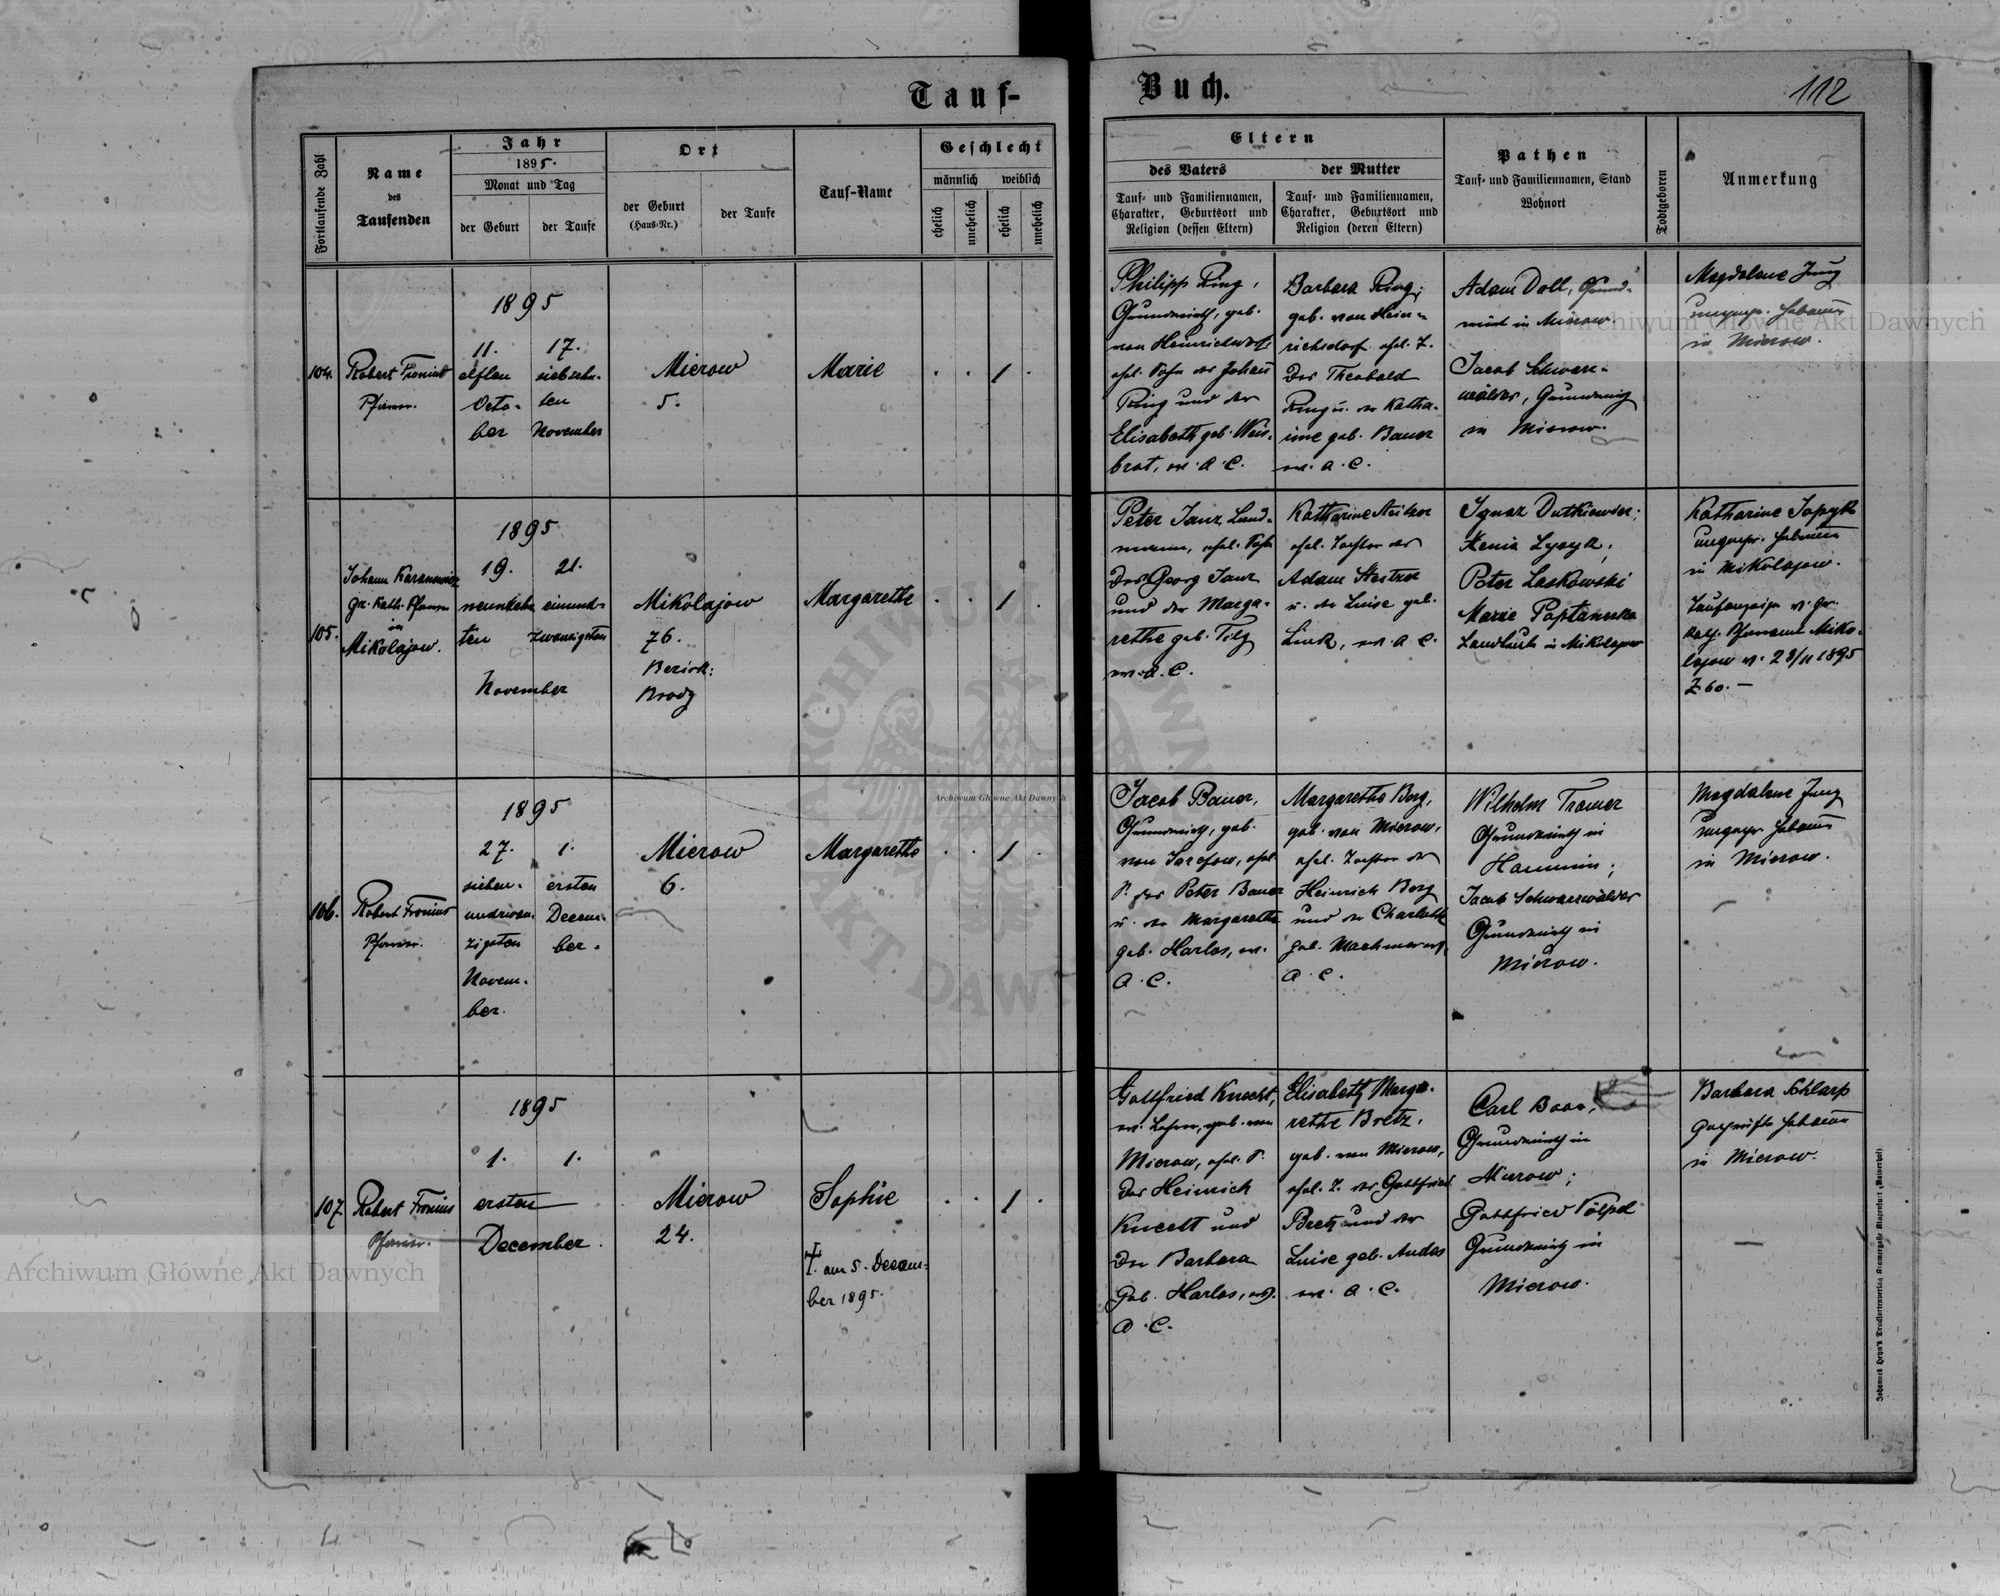 Tauf-
Buch.
112
Fortlaufende Zahl
Name
des
Taufenden
Jahr
1895.
Monat und Tag
der Geburt
der Taufe
Ort
der Geburt
(Haus-Nr.)
der Taufe
Tauf-Name
Geschlecht
männlich
weiblich
ehelich
unehelich
ehelich
unehelich
Eltern
des Vaters
Tauf- und Familiennamen,
Charakter, Geburtsort und
Religion (dessen Eltern)
der Mutter
Tauf- und Familiennamen,
Charakter, Geburtsort und
Religion (deren Eltern)
Pathen
Tauf- und Familiennamen, Stand
Wohnort
Todtgeboren
Anmerkung
104.
Robert Fronius
Pfarrer.
1895
11.
elften
Octo-
ber
17.
siebzehn-
ten
November
Mierow
5.
Marie
1
Philipp Ring,
Grundwirth, geb.
von Heinrichsdorf
ehel. Sohn des Johann
Ring und der
Elisabeth geb. Weis-
brot, ev. A. C.
Barbara Ring,
geb. von Hein-
richsdorf ehel. T.
des Theobald
Ring u. der Katha-
rine geb. Bauer
ev. A. C.
Adam Doll, Grund-
wirt in Mierow.
Jacob Schwarz-
wälder, Grundwirth
in Mierow.
Magdalene Jung
ungepr. Hebamme
in Mierow.
105.
Johann Karanowicz
gr. kath. Pfarrer
in
Mikolajow.
1895
19.
neunzehn
ten
21.
einund-
zwanzigsten
November
Mikolajow
76.
Bezirk:
Brody
Margarethe
1
Peter Janz Land-
mann, ehel. Sohn
des Georg Janz
und der Marga-
rethe geb. Filz
ev. A. C.
Katharine
ehel. Tochter des
Adam
u. der Luise geb.
Link, ev. A. C.
Ignaz Dutkiewicz;
Xenia Lysyk;
Peter Laskowski
Marie
Landleute in Mikolajow
Katharine
ungepr. Hebamme
in Mikolajow.
Taufanzeige v. gr.
kath. Pfarramt Miko-
lajow v. 23/11 1895
Z 60. —
106.
Robert Fronius
Pfarrer.
1895
27.
sieben-
undzwan-
zigsten
Novem-
ber.
1.
ersten
Decem-
ber.
Mierow
6.
Margarethe
1
Jacob Bauer,
Grundwirth, geb.
von ehel.
S. des Peter Bauer
u. der Margarethe
geb. Harlos, ev.
A. C.
Margarethe Berg,
geb. von Mierow,
ehel. Tochter des
Heinrich Berg
und der Charlotte
geb.
A. C.
Wilhelm Tramer
Grundwirth in
Hanunin;
Jacob Schwarzwälder
Grundwirth in
Mierow.
Magdalene Jung
ungepr. Hebamme
in Mierow.
107.
Robert Fronius
Pfarrer.
1895
1.
1.
ersten
December.
Mierow
24.
Sophie
† am 5. Decem-
ber 1895.
1
Gottfried Knecht,
ev. Lehrer, geb. von
Mierow, ehel. S.
des Heinrich
Knecht und
der Barbara
geb. Harlos, ev.
A. C.
Elisabeth Marga-
rethe Bretz,
geb. von Mierow,
ehel. T. des Gottfried
Bretz und der
Luise geb. Andes
ev. A. C.
Carl Boos,
Grundwirth in
Mierow;
Gottfried Völpel
Grundwirth in
Mierow.
Barbara Schlarp
geprüfte Hebamme
in Mierow.
—
Archiwum Główne Akt Dawnych
Archiwum Główne Akt Dawnych
Archiwum Główne Akt Dawnych